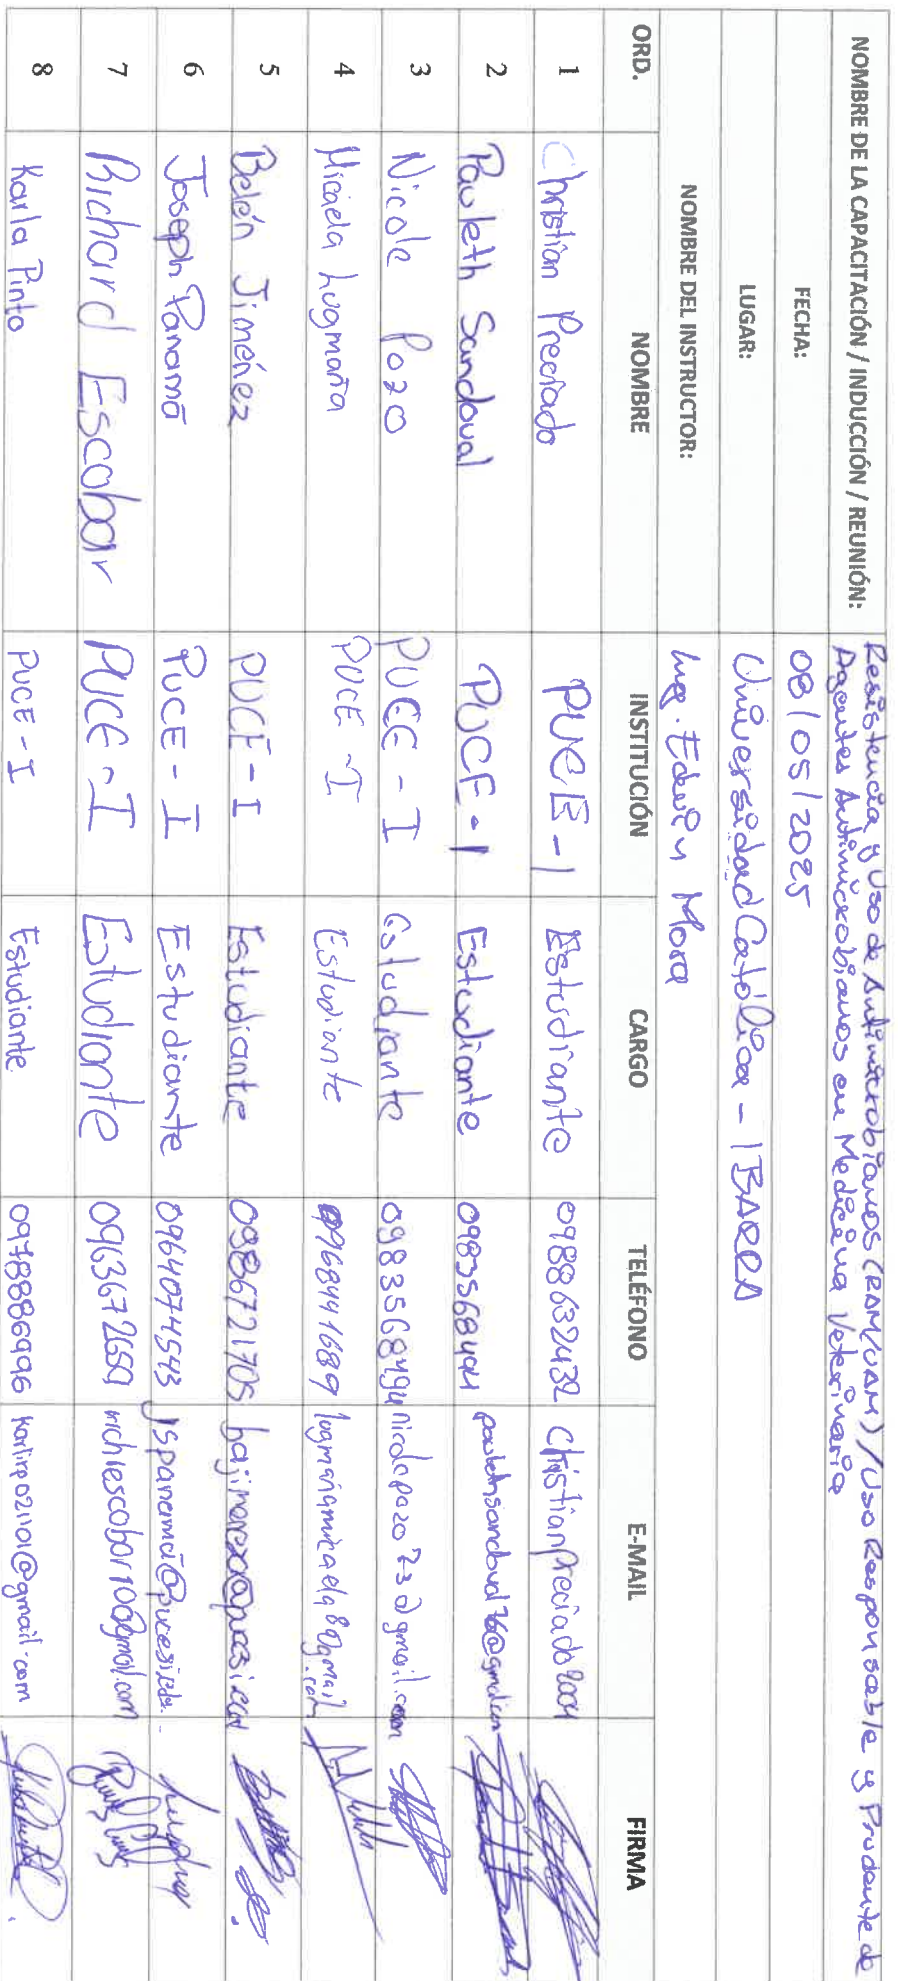 NOMBRE DE LA CAPACITACIÓN / INDUCCIÓN / REUNIÓN: Resistencia y Uso de Antimicrobianos (RAM/UAM) / Uso Responsable y Prudente de
Agentes Antimicrobianos en Medicina Veterinaria
FECHA: 08/05/2025
LUGAR: Universidad Católica - IBARRA
NOMBRE DEL INSTRUCTOR: Ing. Edwin Mora
ORD. NOMBRE INSTITUCIÓN CARGO TELÉFONO E-MAIL FIRMA
1 Christian Preciado PUCE-I Estudiante 0988632432 Christianpreciado2004
2 Pauleth Sandoval PUCE-I Estudiante 0983568494 paulethsandoval76@gmail.com
3 Nicole Pozo PUCE-I Estudiante 0983568494 nicolepozo73@gmail.com
4 Micaela Lugmaña PUCE-I Estudiante 0968441689 lugmañamicaela80gmail.com
5 Belén Jiménez PUCE-I Estudiante 0986721705
6 Joseph Panamá PUCE-I Estudiante 0964074543
7 Richard Escobar PUCE-I Estudiante 0963672659 richiescobar10@gmail.com
8 Karla Pinto PUCE-I Estudiante 0978886996 karlirp021101@gmail.com